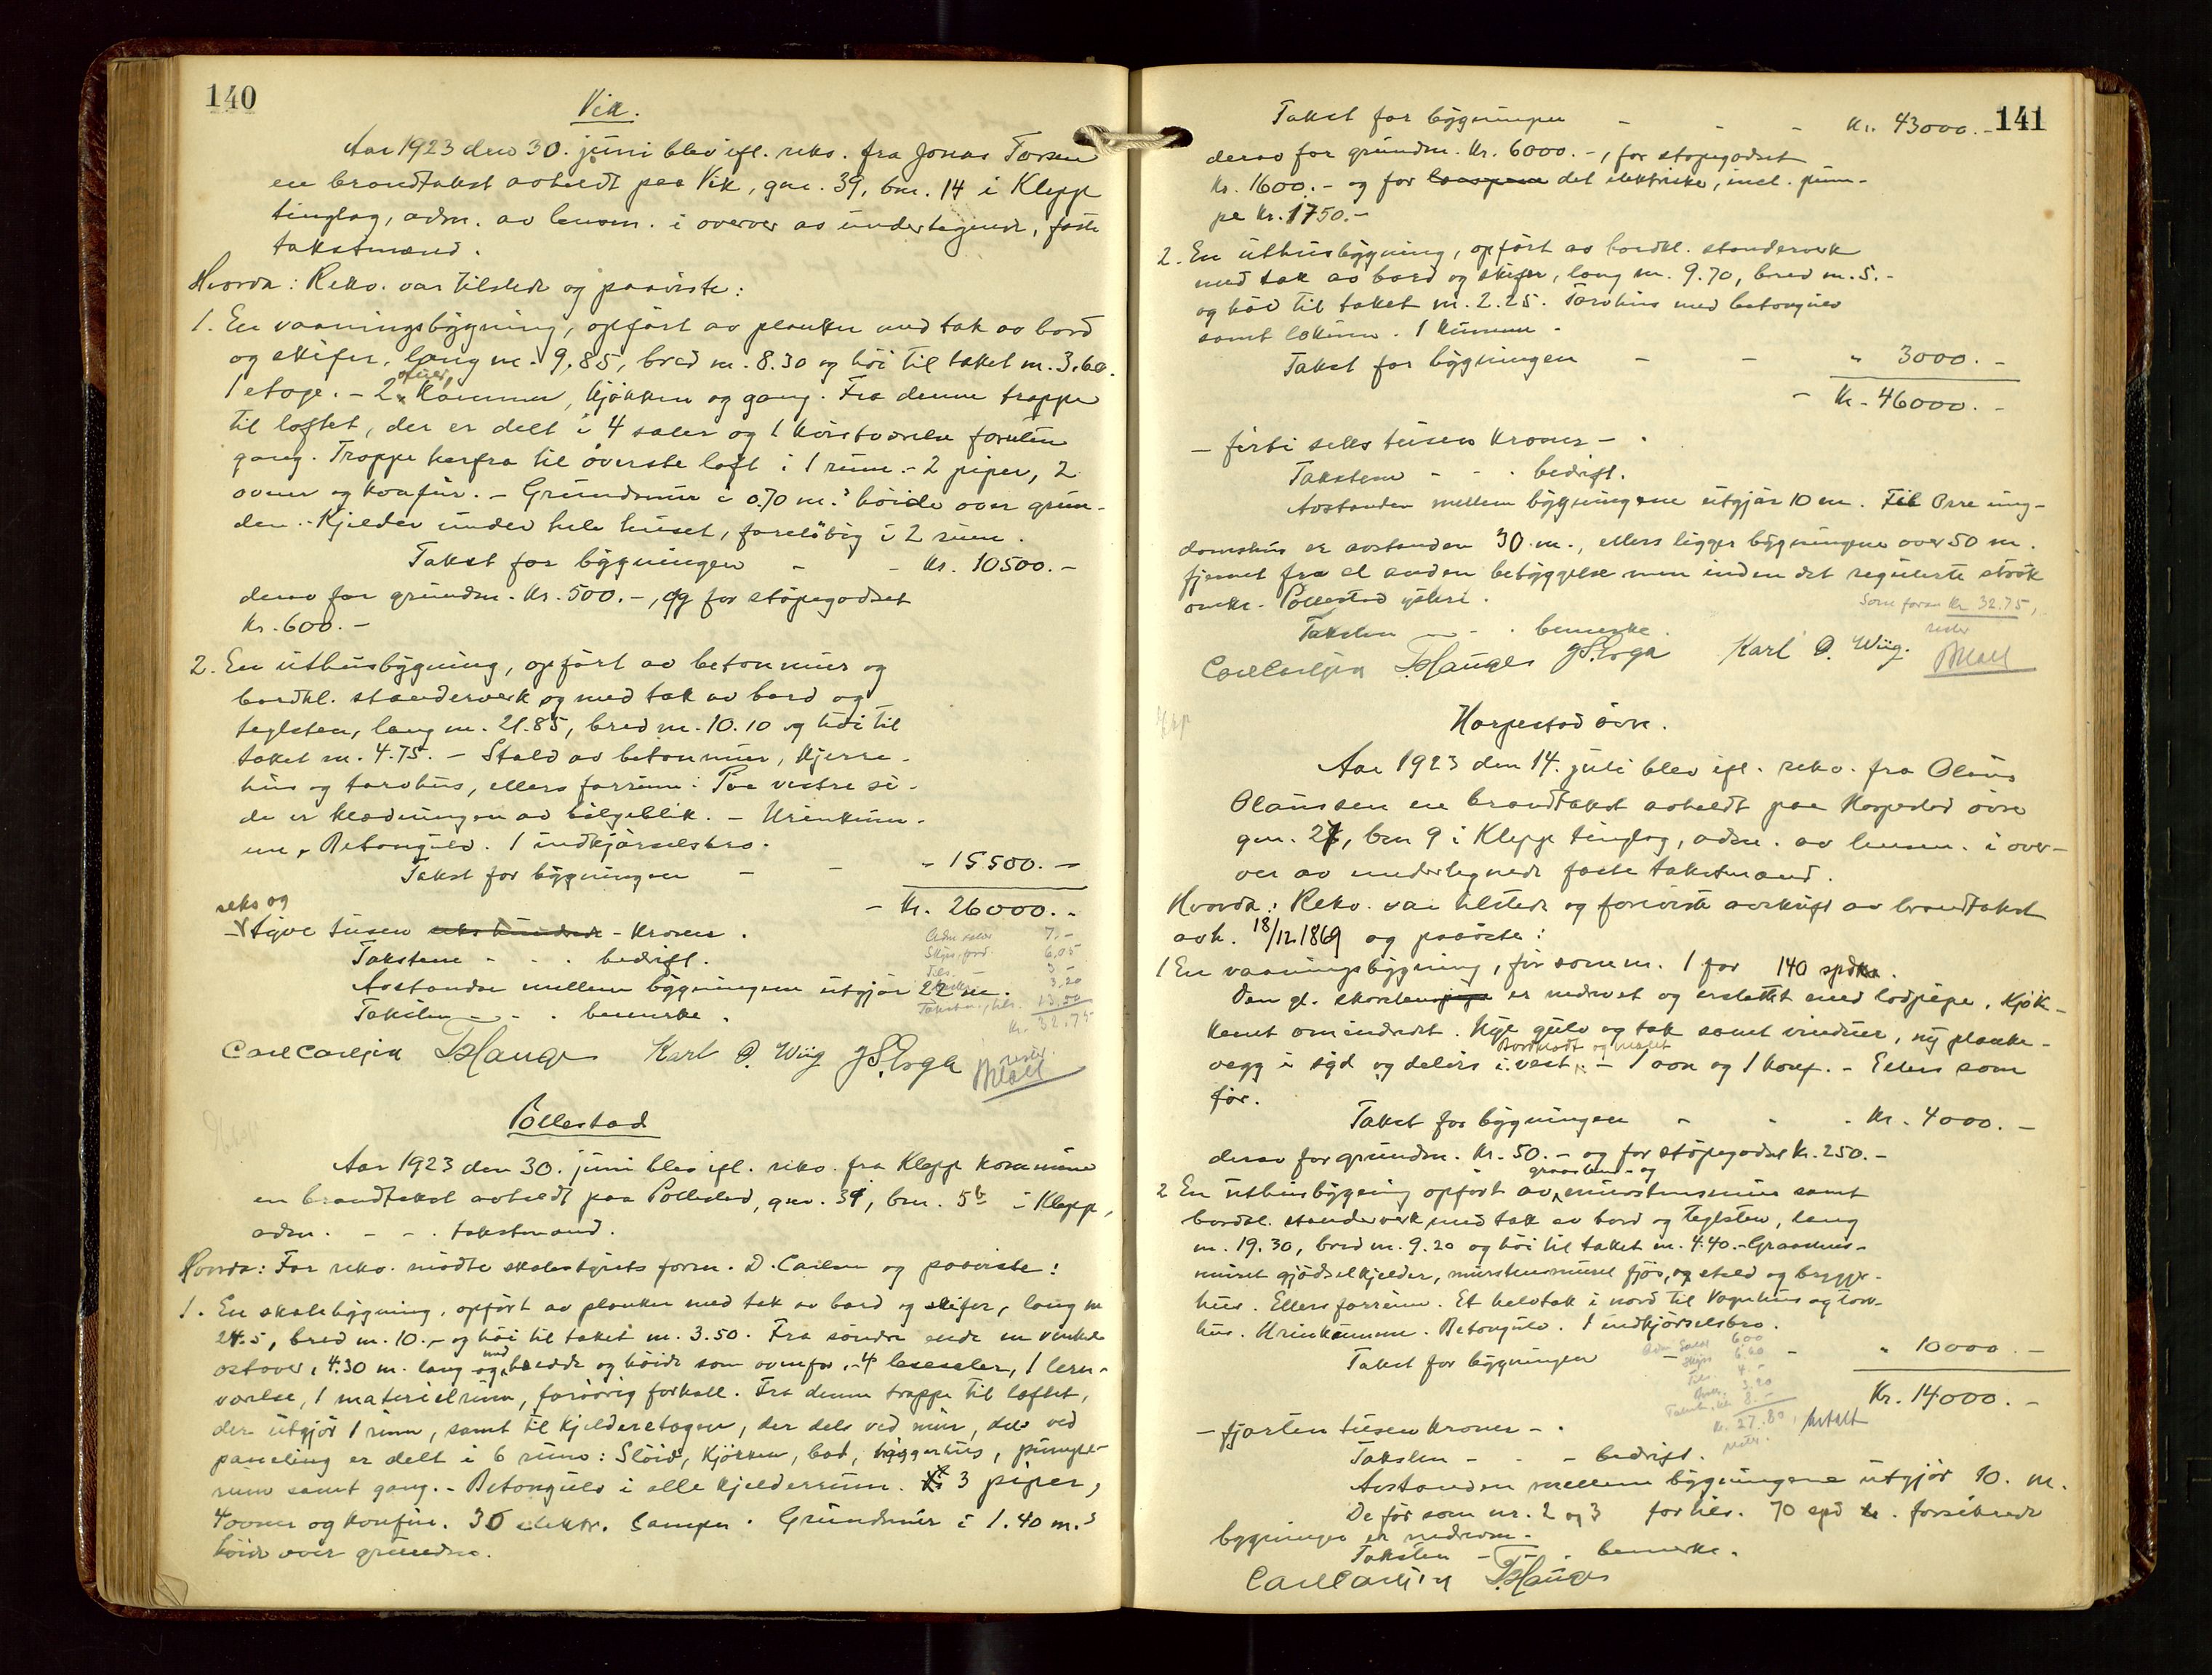 140
Vik.
Aar 1923 den 30. juni blev ifl. rekv. fra Jonas Torsen
en brandtakst avholdt paa Vik, gnr. 39, bnr. 14 i Klepp
tinglag, adm. av lensm. i overvær av undertegnede, faste
takstmænd.
Hvorda: Rekv. var tilstede og paaviste:
1. En vaaningsbygning, opført av planker med tak av bord
og skifer, lang m. 9.85, bred m. 8.30 og høi til taket m. 3.60.
1 etage. - 2 stuer, kammer, kjøkken og gang. Fra denne trappe
til loftet, der er delt i 4 saler og 1 foruten
gang. Trappe herfra til øverste loft i 1 rum. - 2 piper, 2
ovner og komfur. - Grundmur i 0.70 m.s høide over grun-
den. - Kjelder under hele huset, foreløbig i 2 rum.
Takst for bygningen - - Kr. 10500.-
derav for grundm. Kr. 500.-, og for støpegodset
Kr. 600.-
2. En uthusbygning, opført av betonmur og
bordkl. standerverk og med tak av bord og
teglsten, lang m. 21.85, bred m. 10.10 og høi til
taket m. 4.75. - Stald av betonmur, kjerre-
hus og torvhus, ellers forrum. Paa vestre si-
de er klædningen av bølgeblik. - Urinkum-
me. Betongulv. 1 indkjørselsbro.
Takst for bygningen - - " 15500.-
- Kr. 26000.-
seks og
- tyve tusen seks hundrede - kroner.
Taksten - - . bedrift.
Adm. salær 7.-
Skyss. ford. 6.05
Tils. - 3.-
3.20
Takstm., tils. 13.50
Kr. 32.75
Avstanden mellem bygningene utgjør 22 m.
Taksten - - . bemerke.
Carl Carlsen T. Hauge Karl O. Wiig J S. Erga
Pollestad
Aar 1923 den 30. juni blev ifl. rekv. fra Klepp kommune
en brandtakst avholdt paa Pollestad, gnr. 39, bnr. 5b i Klepp,
adm. - - . takstmænd.
Hvorda: For rekv. møtte skolestyrets form. D. Carlsen og paaviste:
1. En skolebygning, opført av planker med tak av bord og skifer, lang m
24.5, bred m. 10.- og høi til taket m. 3.50. Fra søndre ende en vinkel
østover, 4.30 m. lang og med bredde og høide som ovenfor. - 4 lesesaler, 1 lærer-
værelse, 1 materielrum, forøvrig forhall. Fra denne trappe til loftet,
der utgjør 1 rum, samt til kjelderetagen, der dels ved mur, dels ved
paneling er delt i 6 rum: Sløid, kjøkken, bad, bryggerhus, pumpe-
rum samt gang. - Betongulv i alle kjelderrum. 3 piper,
4 ovner og komfur. 36 elektr. lamper. Grundmur i 1.40 m.s
høide over grunden.
141
Takst for bygningen - - - Kr. 43000.-
derav for grundm. Kr. 6000.-, for støpegodset
Kr. 1600.- og for det elektriske, incl. pum-
pe Kr. 1750.-
2. En uthusbygning, opført av bordkl. standerverk
med tak av bord og skifer, lang m. 9.70, bred m. 5.-
og høi til taket m. 2.25. Torvhus med betongulv
samt lokum. 1 kumme.
Takst for bygningen - - " 3000.-
- Kr. 46000.-
- førti seks tusen kroner - .
Taksten - - . bedrift.
Avstanden mellem bygningene utgjør 10 m. Til Orre ung-
domshus er avstanden 30 m., ellers ligger bygningene over 50 m.
fjernet fra al anden bebyggelse men inden det regulerte strøk
omkr. Pollestad ysteri.
Som foran Kr. 32.75,
Taksten - - . bemerke.
Carl Carlsen T. Hauge J S. Erga Karl O. Wiig.
Horpestad øvre.
Aar 1923 den 14. juli blev ifl. rekv. fra Olaus
Olaussen en brandtakst avholdt paa Horpestad øvre
gnr. 27, bnr 9 i Klepp tinglag, adm. av lensm. i over-
vær av undertegnede faste takstmænd.
Hvorda: Rekv. var tilstede og foreviste avskrift av brandtakst
avh. 18/12 1869 og paaviste:
1 En vaaningsbygning, før som nr. 1 for 140 spdlr.
Den gl. skorsten er nedrevet og erstattet med lodpipe. Kjøk-
kenet omindredt. Nye gulv og tak samt vinduer, ny planke-
vegg i syd og delvis i vest. Bordkledt og malet - 1 ovn og 1 komf. - Ellers som
før.
Takst for bygningen - - - Kr. 4000.-
derav for grundm. Kr. 50.- og for støpegodset Kr. 250.-
2 En uthusbygning opført av graastens- og murstensmur samt
bordkl. standerverk med tak av bord og teglsten, lang
m. 19.30, bred m. 9.20 og høi til taket m. 4.40. - Graastens-
muret gjødselkjelder, murstensmuret fjøs, og stald og brygger-
hus. Ellers forrum. Et halvtak i nord til vognhus og torv-
hus. Urinkumme. Betongulv. 1 indkjørselsbro.
Takst for bygningen - - " 10000.-
Kr. 14000.-
Adm. Salær 6.00
Skyss 6.60
Tils. 4.-
3.20
8.-
Kr. 27.80, betalt
- fjorten tusen kroner - .
Taksten - - - bedrift.
Avstanden mellem bygningene utgjør 10. m.
De før som nr. 2 og 3 for tils. 70 spd forsikrede
bygninger er nedrevne.
Taksten - - . bemerke.
Carl Carlsen T. Hauge